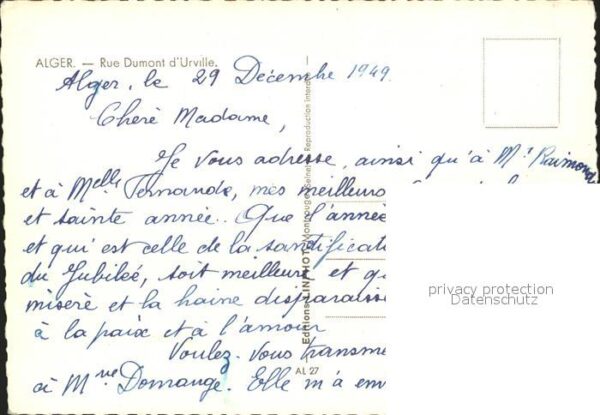 ALGER. — Rue Dumont d'Urville.
Alger, le 29 Décembre 1949.
Chère Madame,
Je vous adresse, ainsi qu'à Mr Raimond
et à Melle Fernande, mes meilleurs
et sainte année. Que l'année
et qui est celle de la sanctificat
du Jubileé, soit meilleure et qu
misère et la haine disparaiss
à la paix et à l'amour
Voulez-vous transme
à Mme Domange. Elle m'a em
Editions LINPHOT
Reproduction interd
AL 27
privacy protection
Datenschutz